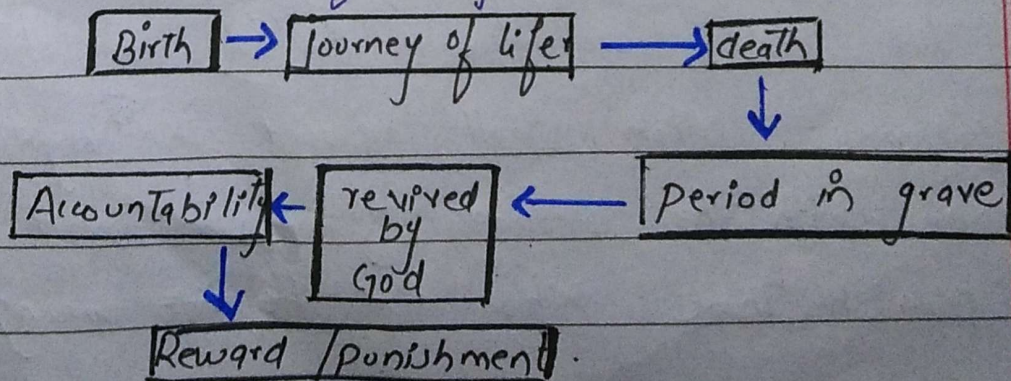 Birth → Journey of life → death
Period in grave
revived
by
God
Accountability
Reward / punishment.